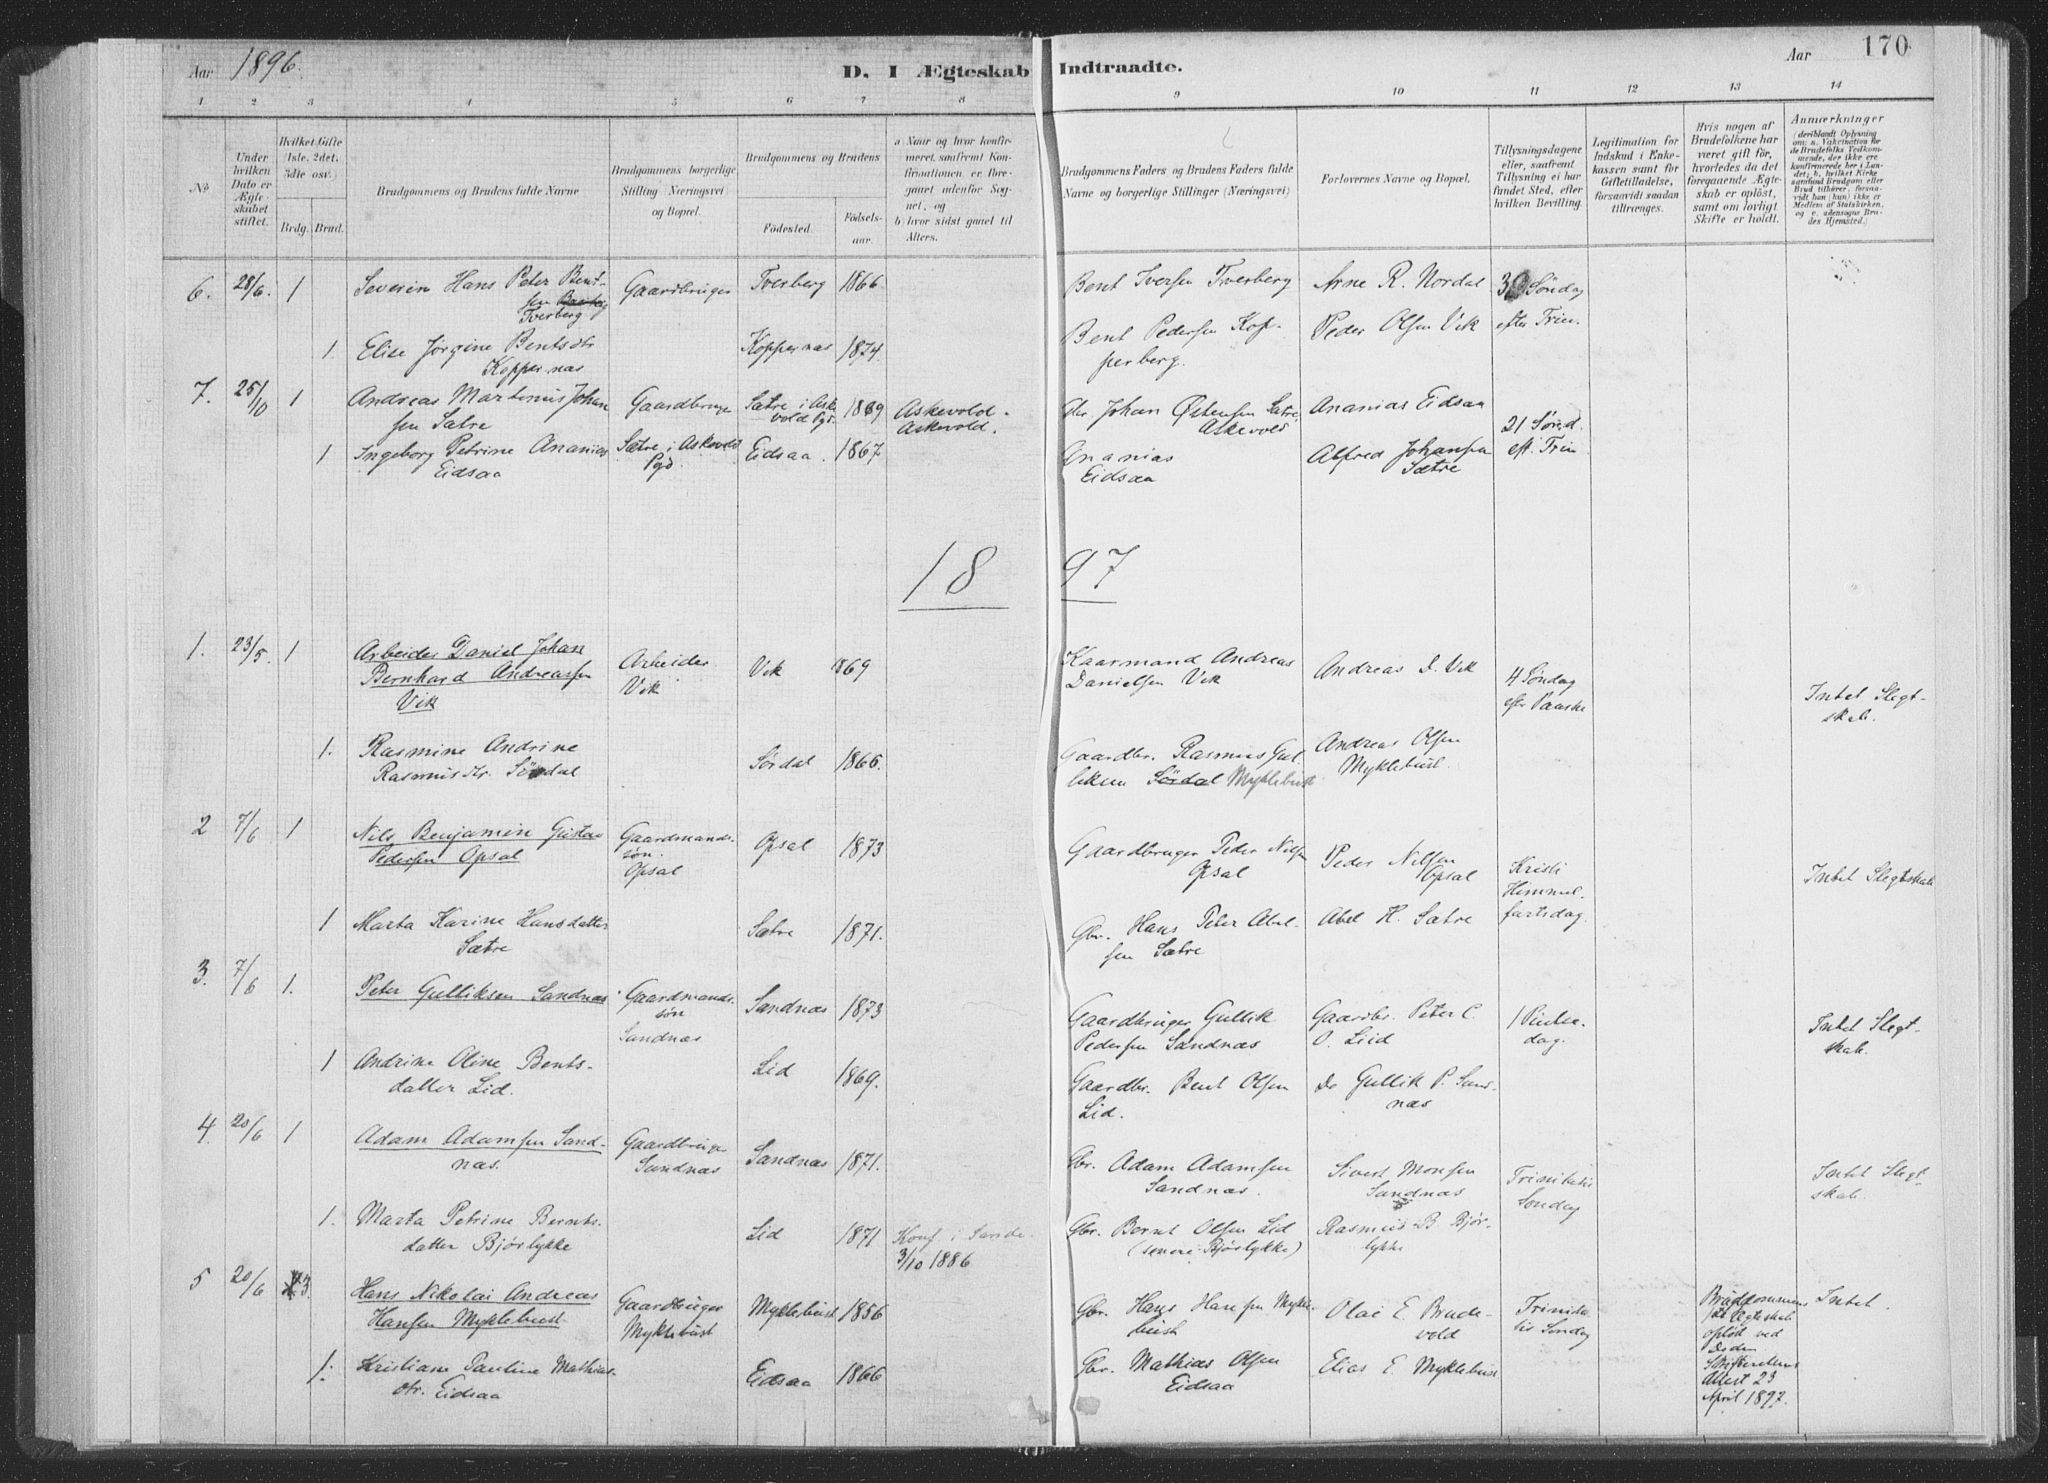 Aar 1896. D. I Ægteskab Indtraadte. Aar 170
1 2 3 4 5 6 7 8 9 10 11 12 13 14
No
Under hvilken Dato er Ægteskabet stiftet.
Hvilket Gifte (1ste, 2det, 3die osv.)
Brdg. Brud.
Brudgommens og Brudens fulde Navne
Brudgommens borgerlige Stilling (Næringsvei) og Bopæl.
Brudgommens og Brudens
Fødested. Fødselsaar.
a) Naar og hvor konfirmeret, saafremt Konfirmationen er foregaaet udenfor Sognet, og
b) hvor sidst gaaet til Alters.
Brudgommens Faders og Brudens Faders fulde Navne og borgerlige Stillinger (Næringsvei)
Forlovernes Navne og Bopæl.
Tillysningsdagene eller, saafremt Tillysning ei har fundet Sted, efter hvilken Bevilling.
Legitimation for Indskud i Enkekassen samt for Giftetilladelse, forsaavidt saadan tiltrænges.
Hvis nogen af Brudefolkene har været gift før, hvorledes da det foregaaende Ægteskab er opløst, samt om lovligt Skifte er holdt.
Anmærkninger
(deriblandt Oplysning om: a. Vakcination for de Brudefolks Vedkommende, der ikke ere konfirmerede her i Landet; b. hvilket Kirkesamfund Brudgom eller Brud tilhører, forsaavidt han (hun) ikke er Medlem af Statskirken, og c. udensogns Brudes Hjemsted.)
6. 28/6. 1 Severin Hans Peter Bentsen Tverberg Gaardbruger Tverberg 1866 Bent Iversen Tverberg Arne R. Nordal 3 Søndag
1. Elise Jørgine Bentsdtr Koppernæs Koppernæs 1874 Bent Pedersen Kopperberg. Peder Olsen Vik efter Trin.
7. 25/10 1 Andreas Martinus Johansen Sætre Gaardbruger Sætre i Askevold Pgd. Sætre i Askevold Pgd. 1869 Askevold. Askevold. Johan Østensen Sætre Askevold Ananias Eidsaa 21 Sønd. eft. Trin
1 Ingeborg Petrine Ananias Eidsaa Eidsaa. 1867 Ananias Eidsaa Alfred Johansen Sætre
18 97
1. 23/5. 1 Arbeider Daniel Johan Bernhard Andreassen Vik Arbeider Vik Vik 869 Kaarmand Andreas Danielsen Vik Andreas D. Vik 4 Søndag efter Paaske Intet Slegtskab.
1. Rasmine Andrine Rasmusdtr. Sørdal Sørdal 1866. Gaardbr. Rasmus Gulliksen Sørdal Myklebust Andreas Olsen Myklebust.
2 7/6 1 Nils Benjamin Gustav Pedersen Opsal Gaardmandssøn. Opsal Opsal 1873 Gaardbruger Peder Nilsen Opsal Peder Nilsen Opsal Kristi Himmelfartsdag. Intet Slegtskab
1 Marta Karine Hansdatter Sætre Sætre 1871. Gbr. Hans Peter Abelsen Sætre Abel H. Sætre
3. 7/6 1. Peter Gulliksen Sandnæs Gaardmandssøn Sandnæs Sandnæs 1873 Gaardbruger Gullik Pedersen Sandnæs Gaardbr. Peter C. O. Liid 1 Pintsedag. Intet Slegtskab.
1 Andrine Oline Bentsdatter Lid. Lid 1869. Gaardbr. Bent Olsen Lid. Do Gullik P. Sandnæs
4. 20/6 1 Adam Adamsen Sandnæs. Gaardbruger Sandnæs Sandnæs 1871. Gbr. Adam Adamsen Sandnæs. Sivert Monsen Sandnæs Trinitatis Sondag Intet Slegtskab.
1. Marta Petrine Berntsdatter Bjørlykke Lid 1871 Konf i Sande 3/10 1886 Gbr. Bernt Olsen Lid (senere Bjørlykke) Rasmus B. Bjørlykke
5 20/6 3. Hans Nikolai Andreas Hansen Myklebust Gaardbruger Myklebust Myklebust 1856 Gbr. Hans Hansen Myklebust Olai E. Brudevold Trinitatis Søndag Brudgommens Egteskab opløst ved Døden Skifterettens Attest 23 April 1897. Intet.
1. Kristiane Pauline Mathiasdtr. Eidsaa Eidsaa 1866 Gbr. Mathias Olsen Eidsaa Elias E. Myklebust